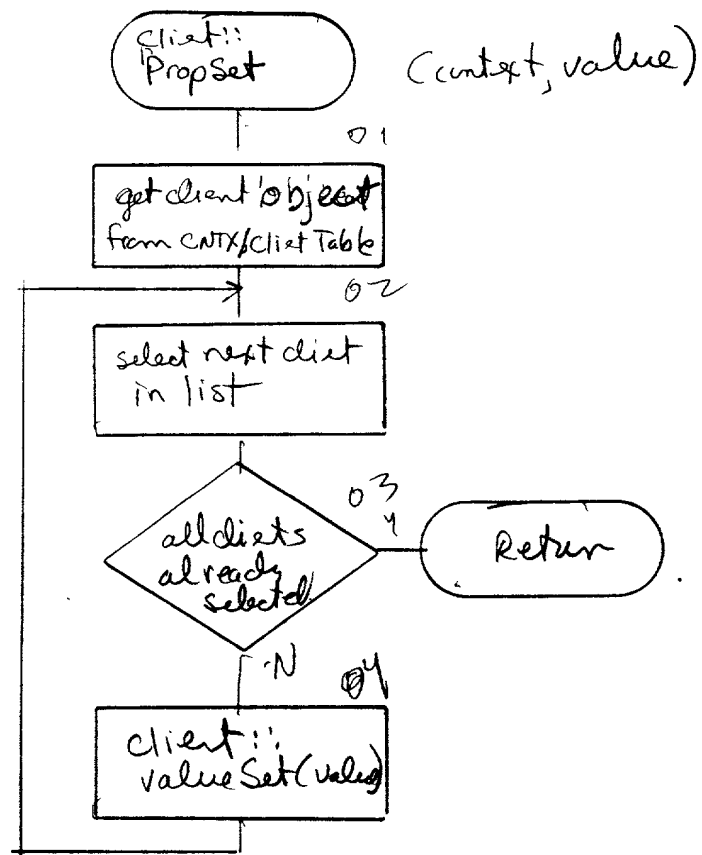 client::
PropSet
(context, value)
01
get client object
from CNTX/Client Table
02
select next client
in list
03
Y
all clients
already
selected
Return
N
04
client::
valueSet(value)